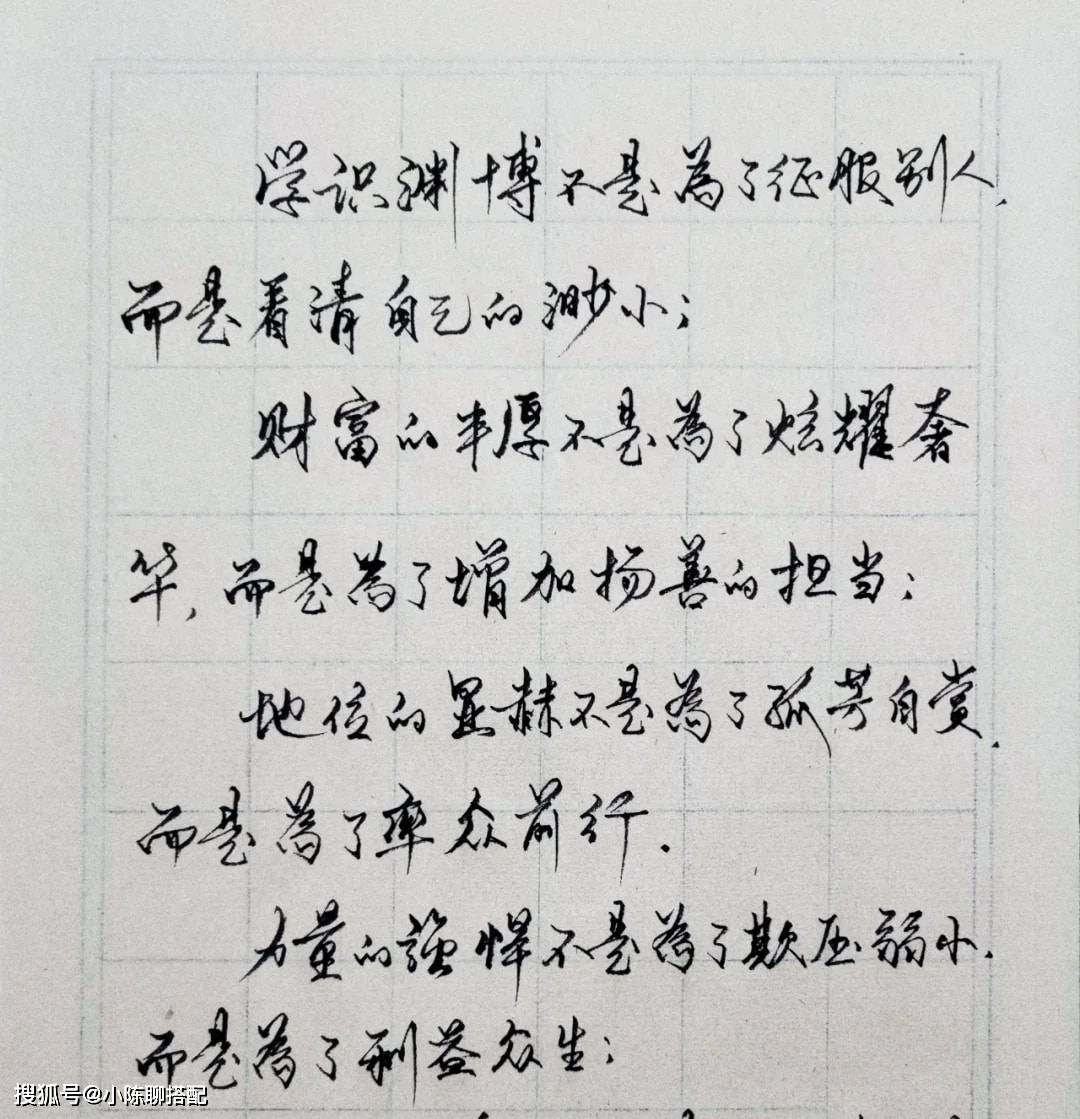 学识渊博不是為了征服别人,
而是看清自己的渺小;
财富的丰厚不是為了炫耀奢
华,而是為了增加扬善的担当;
地位的显赫不是為了孤芳自赏,
而是為了率众前行.
力量的强悍不是為了欺压弱小.
而是為了利益众生;
搜狐号@小陈聊搭配